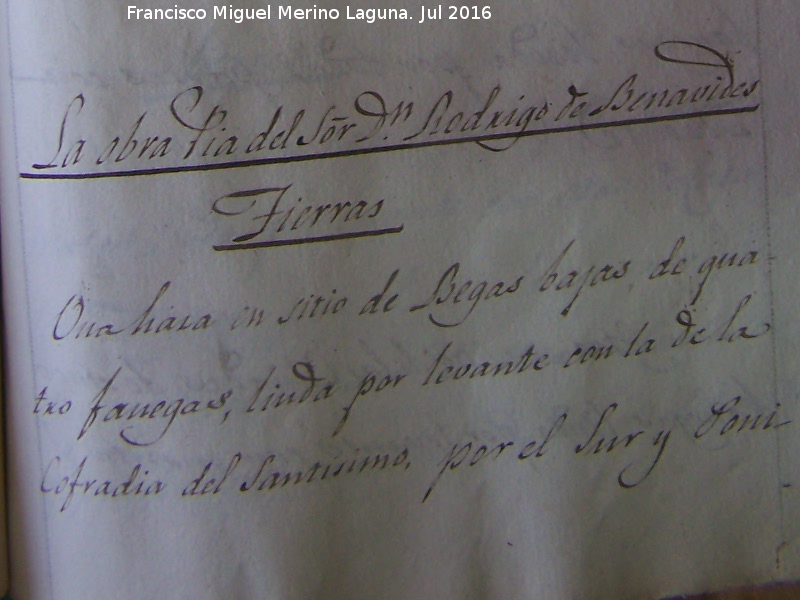 Francisco Miguel Merino Laguna. Jul 2016
La obra Pia del Sōr Dn. Rodrigo de Benavides
Tierras
Una haza en sitio de Begas bajas de qua-
tro fanegas, linda por levante con la de la
Cofradia del Santisimo, por el Sur y Poni-